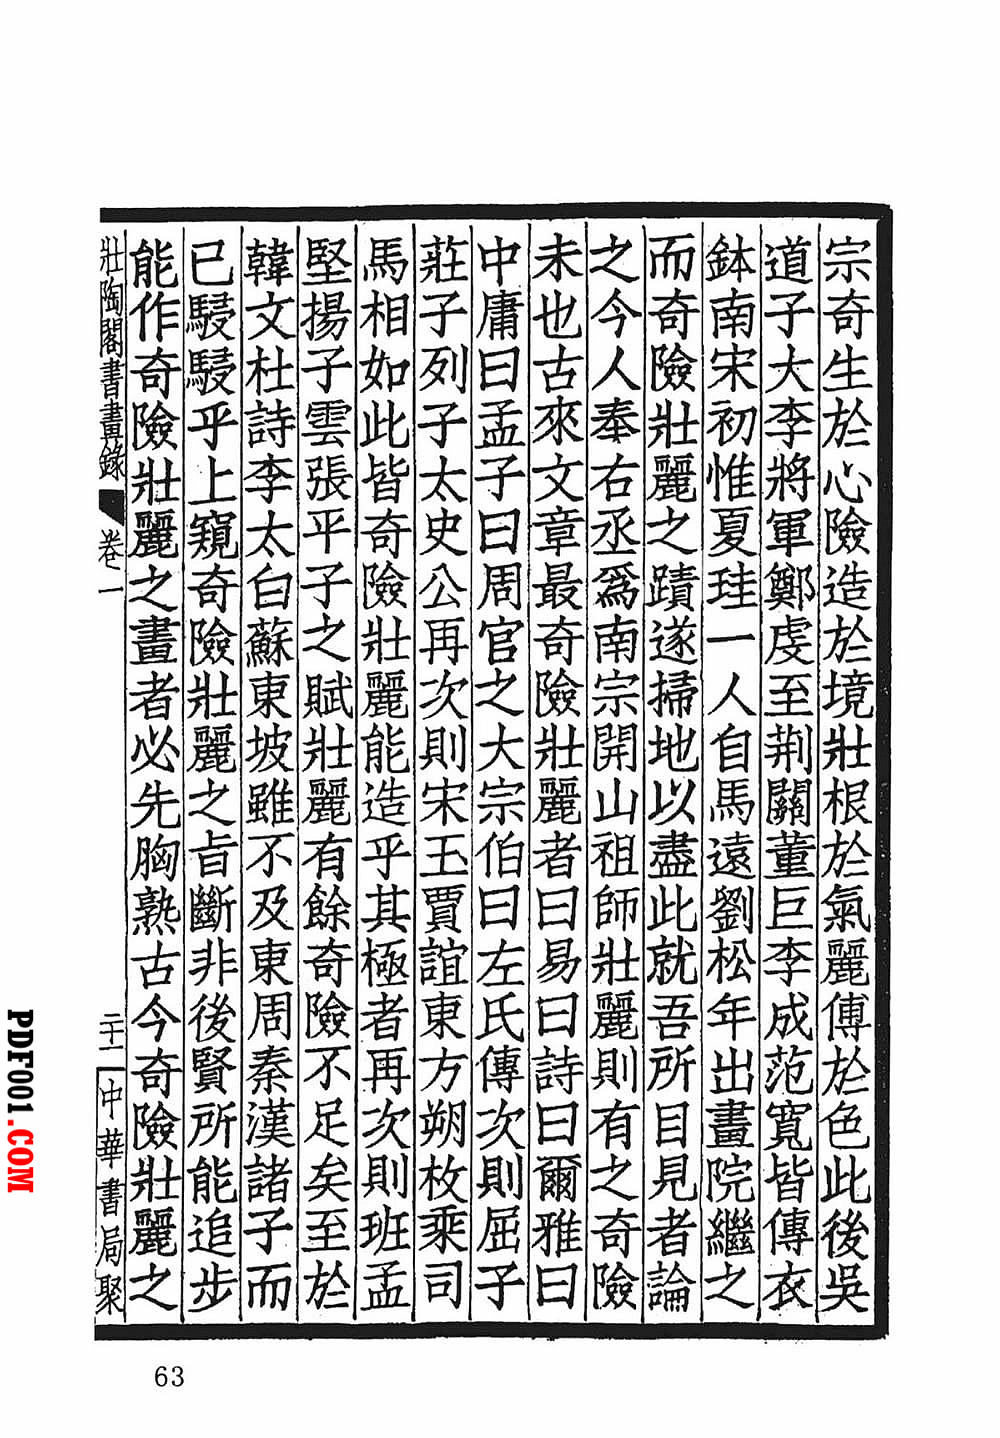 宗奇生於心險造於境壯根於氣麗傳於色此後吳
道子大李將軍鄭虔至荆關董巨李成范寬皆傳衣
鉢南宋初惟夏珪一人自馬遠劉松年出畫院繼之
而奇險壯麗之蹟遂掃地以盡此就吾所目見者論
之今人奉右丞爲南宗開山祖師壯麗則有之奇險
未也古來文章最奇險壯麗者曰易曰詩曰爾雅曰
中庸曰孟子曰周官之大宗伯曰左氏傳次則屈子
莊子列子太史公再次則宋玉賈誼東方朔枚乘司
馬相如此皆奇險壯麗能造乎其極者再次則班孟
堅揚子雲張平子之賦壯麗有餘奇險不足矣至於
韓文杜詩李太白蘇東坡雖不及東周秦漢諸子而
已駸駸乎上窺奇險壯麗之旨斷非後賢所能追步
能作奇險壯麗之畫者必先胸熟古今奇險壯麗之
壯陶閣書畫錄 卷一 二十一 中華書局聚
63
PDF001.COM